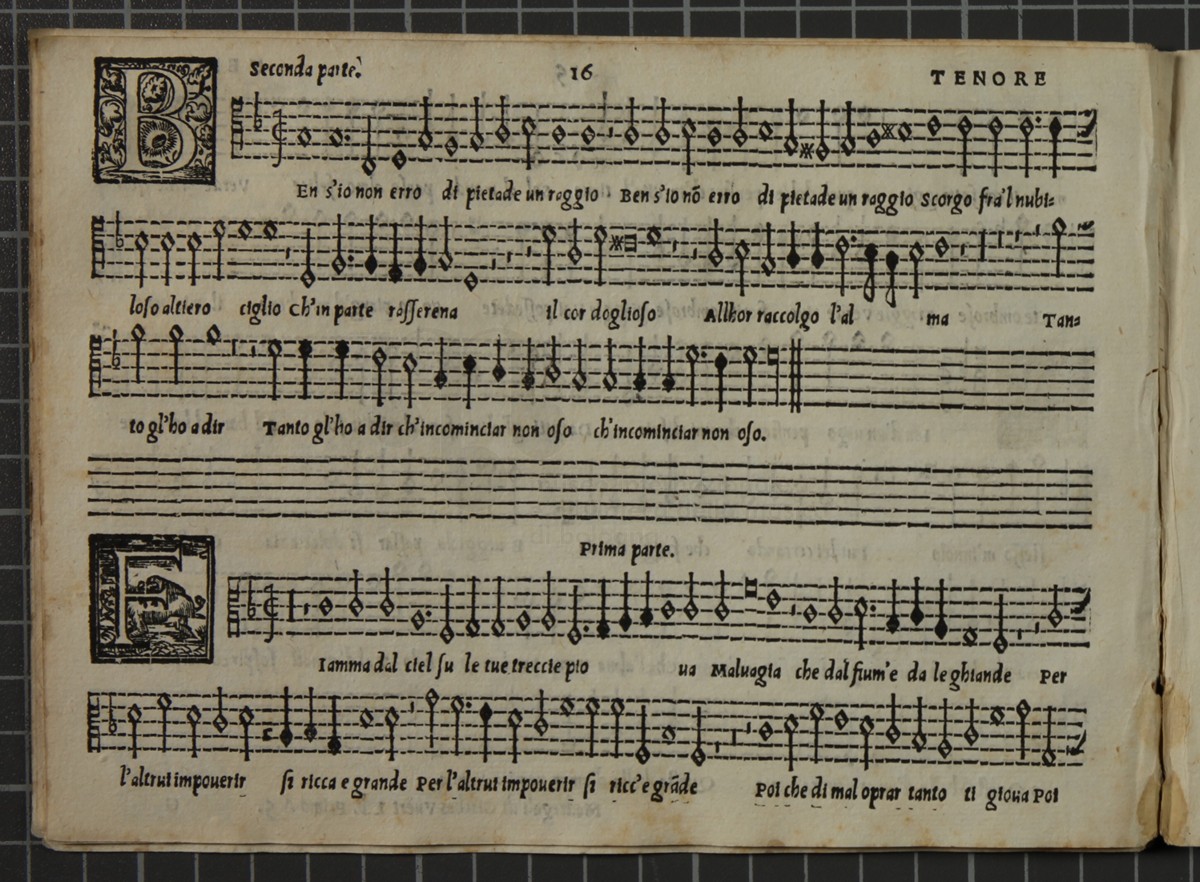 Seconda parte.
16
TENORE
B
En s'io non erro di pietade un raggio Ben s'io nõ erro di pietade un raggio scorgo fra'l nubi-
loso altiero ciglio Ch'in parte rasserena il cor doglioso Allhor raccolgo l'al ma Tan-
to gl'ho a dir Tanto gl'ho a dir ch'incominciar non oso ch'incominciar non oso.
Prima parte.
F
Iamma dal ciel su le tue treccie pio ua Maluagia che dal fium'e da le ghiande Per
l'altrui impouerir si ricca e grande Per l'altrui impouerir si ricc'e grãde Poi che di mal oprar tanto ti gioua Poi